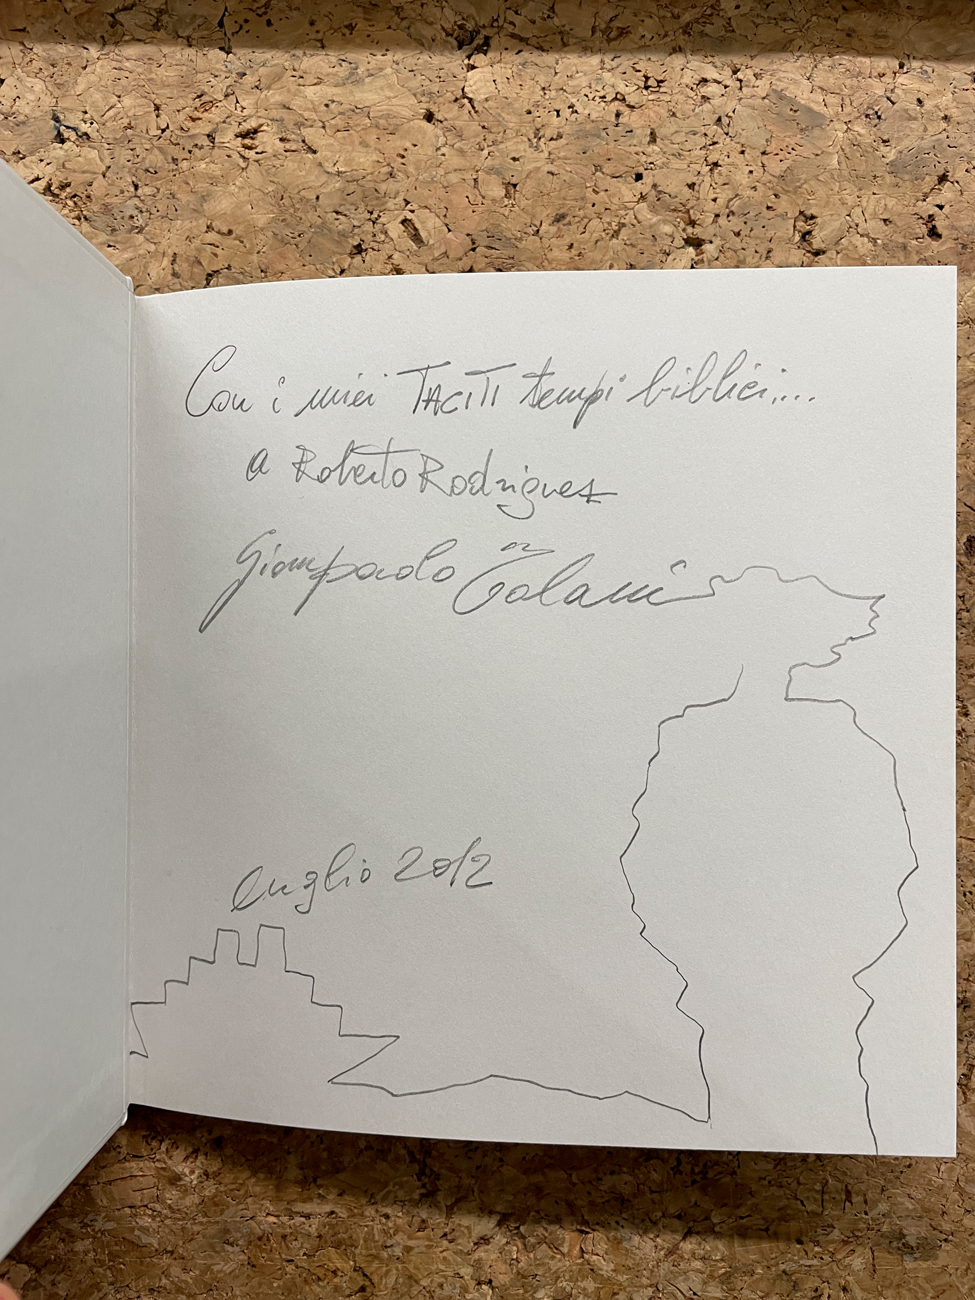 Con i miei TACITI tempi biblici....
a Roberto Rodriguez
Giampaolo Talani
luglio 2012